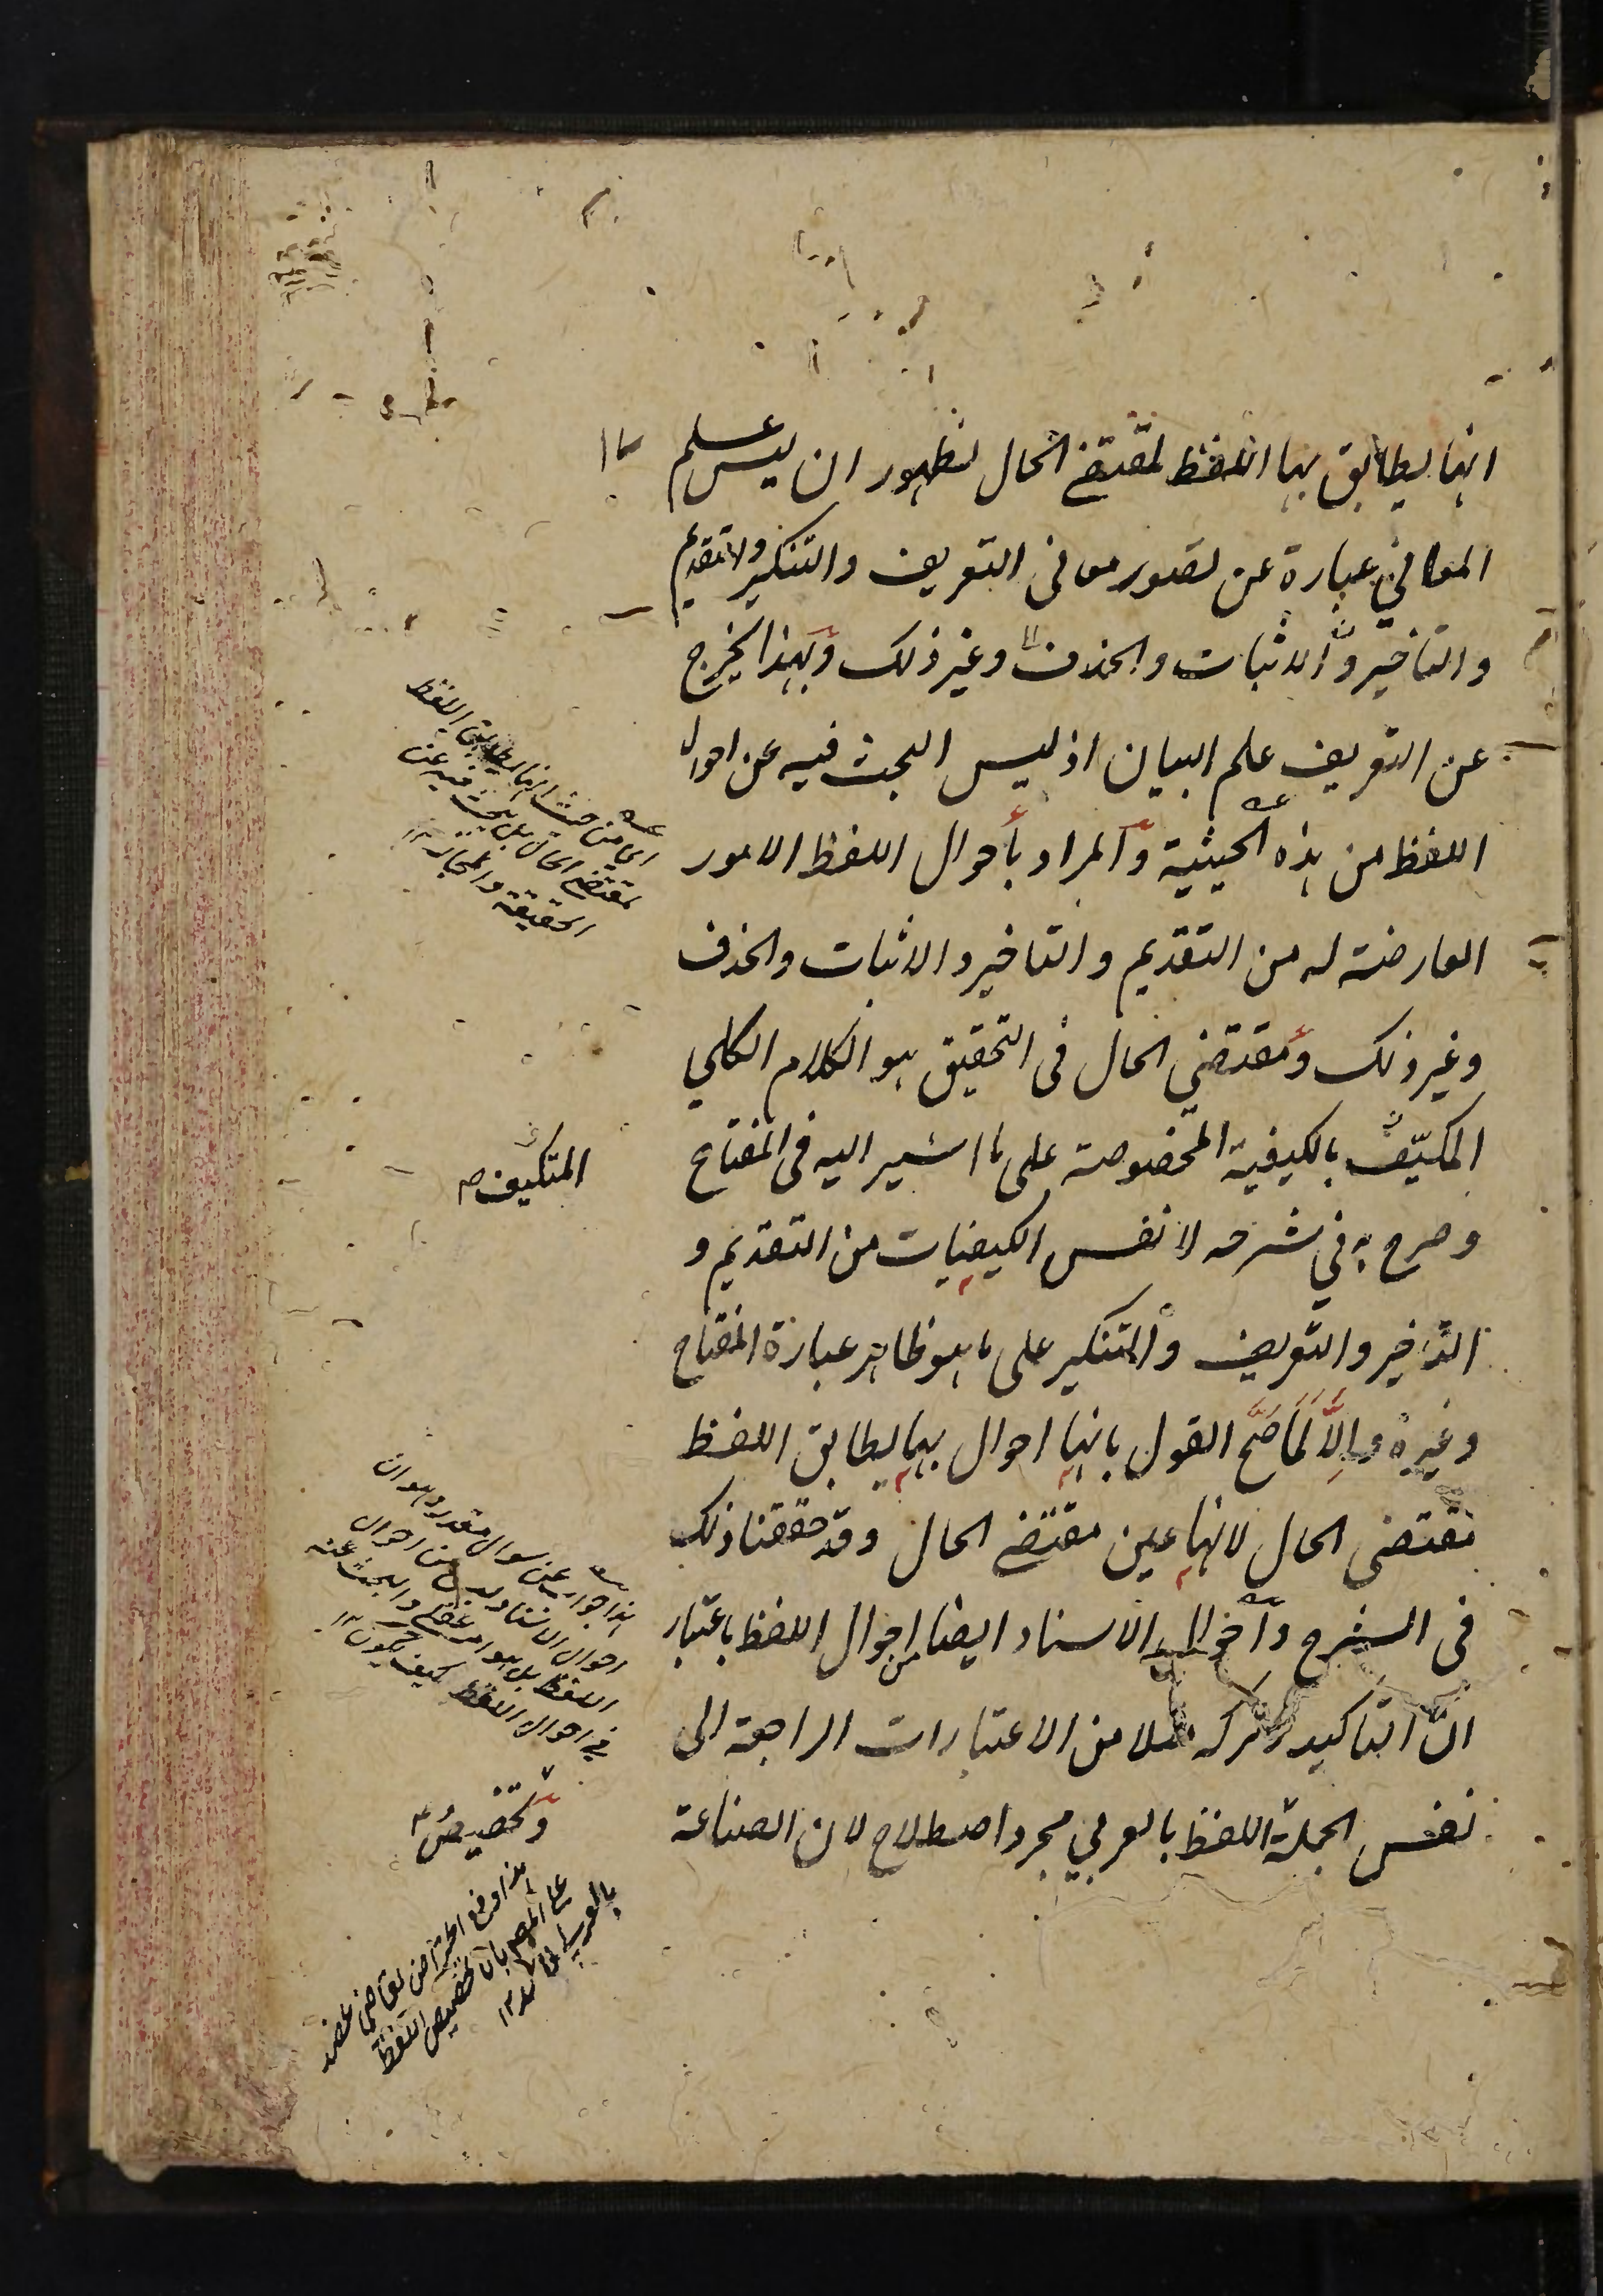 انها يطابق بها اللفظ لمقتضى الحال لظهور ان ليس علم
المعاني عبارة عن تصور معانى التعريف والتنكير والتقديم
والتاخير والاثبات والحذف وغير ذلك وبهذا يخرج
عن التعريف علم البيان اذ ليس البحث فيه عن احوال
اللفظ من هذه الحيثية والمراد بأحوال اللفظ الامور
العارضة له من التقديم والتاخير والاثبات والحذف
وغير ذلك ومقتضي الحال فى التحقيق هو الكلام الكلي
المكيّف بالكيفية المخصوصة على ما اشير اليه فى المفتاح
وصرح به في شرحه لا نفس الكيفيات من التقديم و
التاخير والتعريف والتنكير على ما هو ظاهر عبارة المفتاح
وغيره وإلّا لَمَا صَحَّ القول بانها احوال بها يطابق اللفظ
مقتضى الحال لانها عين مقتضى الحال وقد حققنا ذلك
فى الشرح واحوال الاسناد ايضا من احوال اللفظ باعتبار
انّ التاكيد وتركه مثلا من الاعتبارات الراجعة الى
نفس الجملة اللفظ بالعربي مجرد اصطلاح لان الصناعة
اي من حيث انها يطابق اللفظ
لمقتضى الحال بل يبحث فيه عن
الحقيقة والمجاز ١٢
المتكيف
هذا جواب عن سوال مقدر وهو ان
احوال الاسناد ليس من احوال
اللفظ بل هو امر عقلي والبحث عنه
في احوال اللفظ كيف يكون ١٢
وتخصيص
هذا دفع اعتراض القاضي عضد
على المص بان تخصيص اللفظ
بالعربي